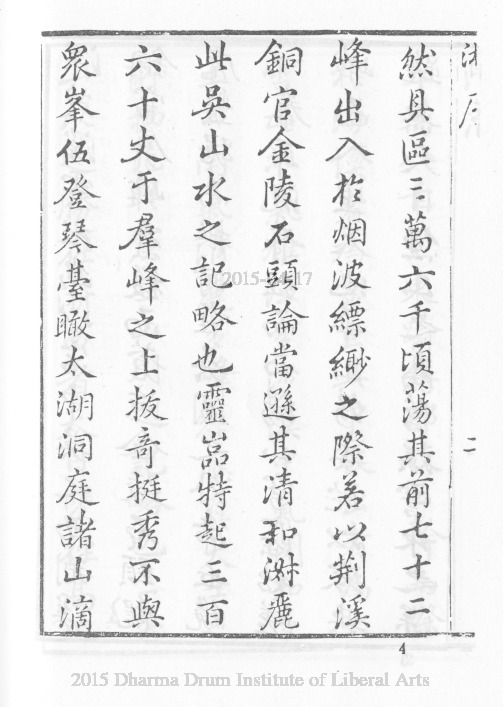 然具區三萬六千頃蕩其前七十二
峰出入於烟波縹緲之際若以荆溪
銅官金陵石頭論當遜其清和淋麗
此吳山水之記略也靈嵓特起三百
六十丈于羣峰之上拔竒挺秀不與
衆峯伍登琴臺瞰太湖洞庭諸山滴
二
4
2015 Dharma Drum Institute of Liberal Arts